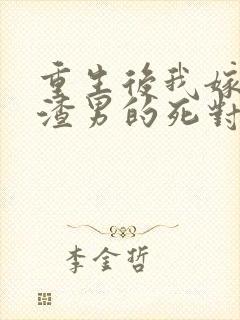 重生後我嫁
渣男的死對
李金哲